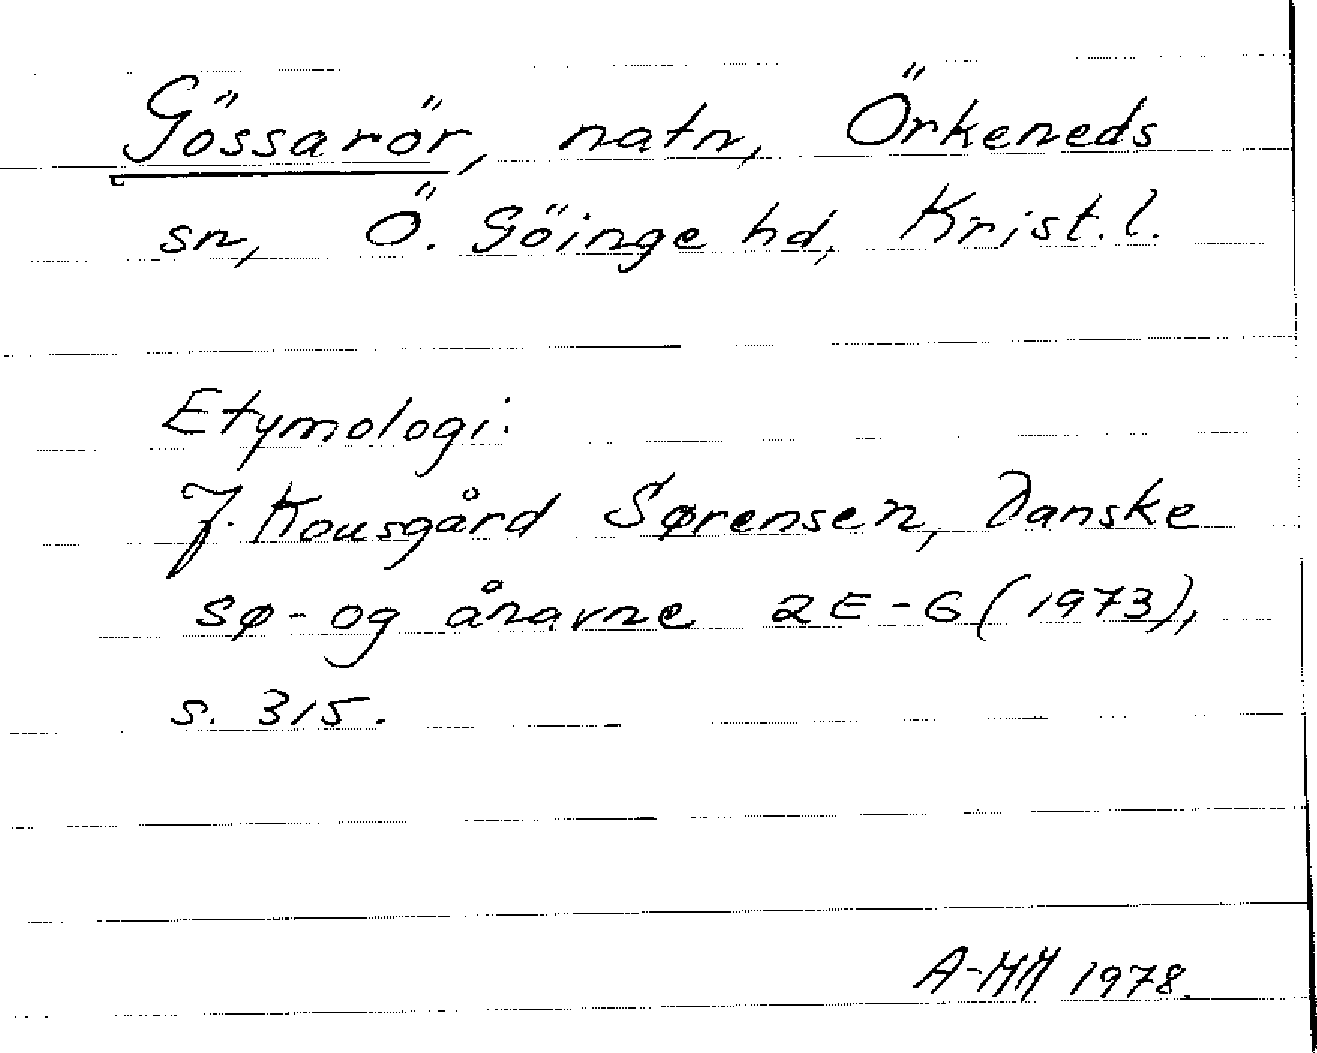 Gössarör, natn, Örkeneds
sn, Ö. Göinge hd, Krist. l.
Etymologi:
J. Kousgård Sørensen, Danske
sø- og ånavne 2 E-G (1973),
s. 315.
A-MM 1978.